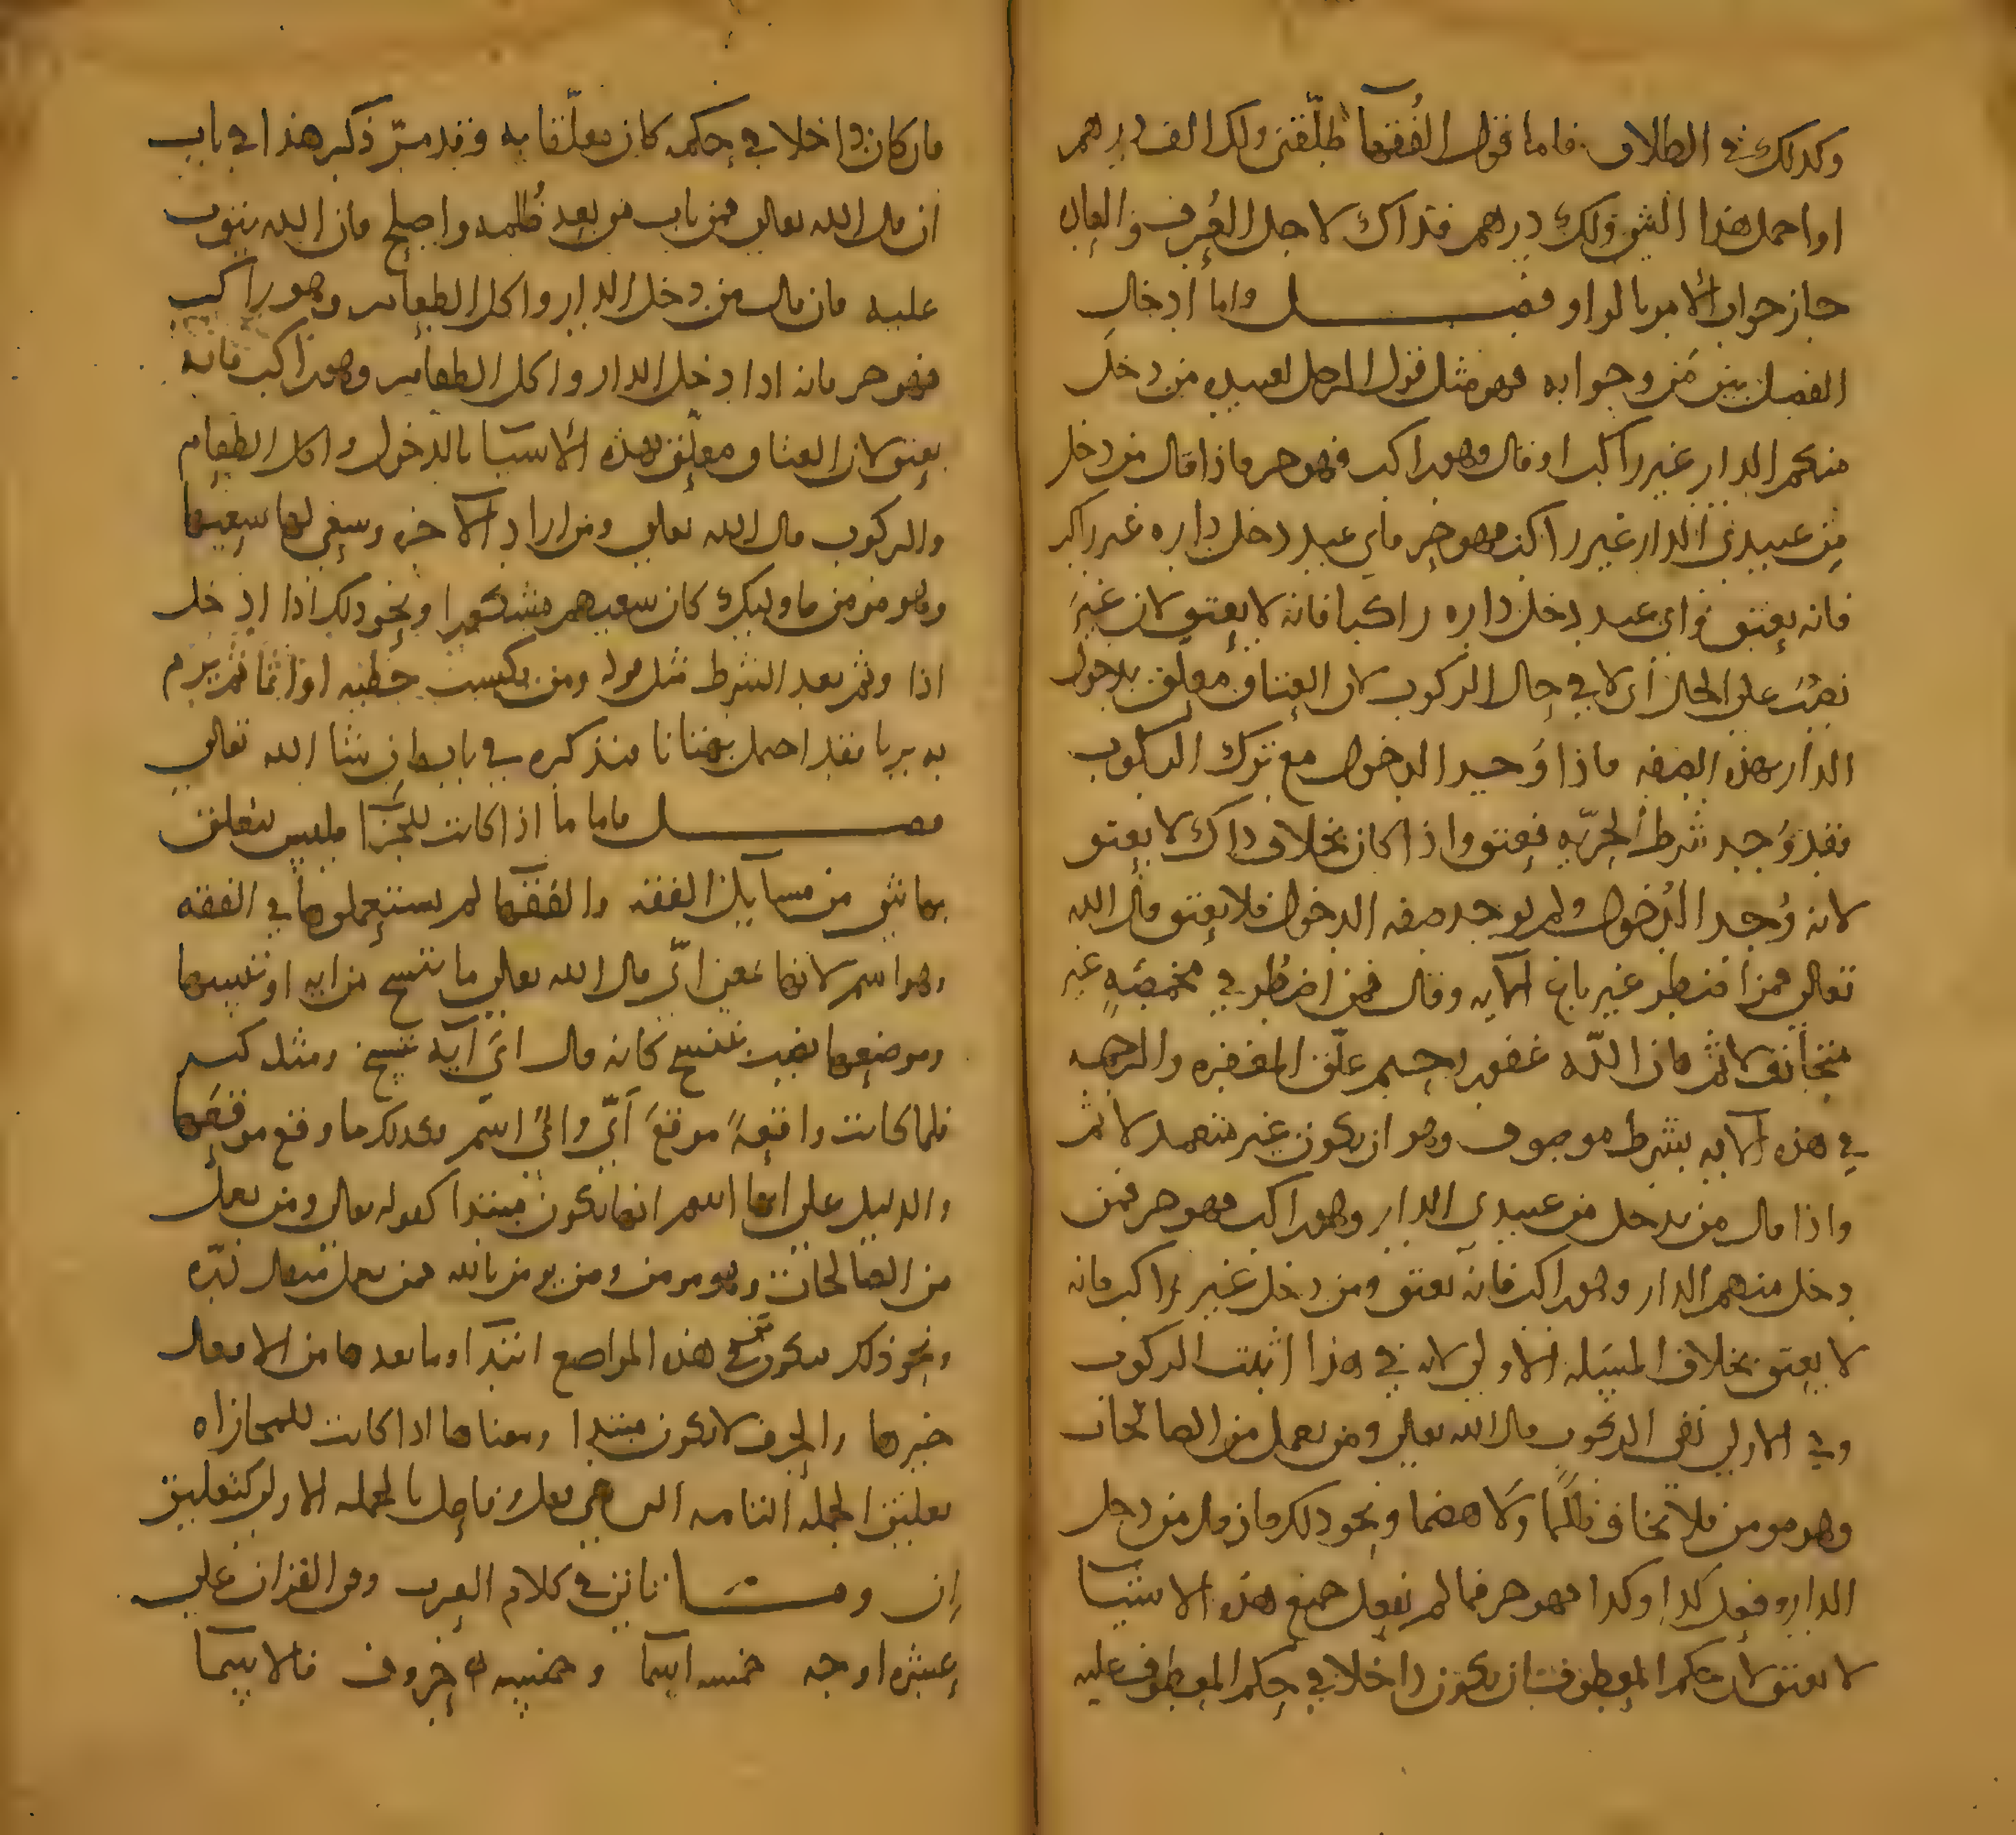 وكذلك في الطلاق فاما قول الفقهآ طلّقني ولك الف درهم
او احمل هذا الشي ولك درهم فذاك لاجل العُرف والعاده
جاز جواب الامر بالواو فصل واما ادخال
الفصل بين مَن وجوابه فهو مثل قول الرجل لعبيده من دخل
منكم الدار غير راكب او قال وهو راكب فهو حر فاذا قال من دخل
من عبيدي الدار غير راكب فهو حر فاي عبد دخل داره غير راكب
فانه يعتق واي عبد دخل داره راكبا فانه لا يعتق لان غيرَ
نصبٌ على الحال اي لا في حال الركوب لان العتاق معلق بدخول
الدار بهذه الصفه فاذا وُجد الدخول مع ترك الركوب
فقد وُجد شرط الحريّه فعتق واذا كان بخلاف ذاك لا يعتق
لانه وُجد الدُخول ولم يوجد صفه الدخول فلا يعتق قال الله
تعالى فمن اضطر غير باغ الآيه وقال فمن اضطُر في مخمصَةٍ غير
متجانف لاثم فان اللّه غفور رحيم علّق المغفره والرحمه
في هذه الآيه بشرط موصوف وهو ان يكون غير متعمد لاثم
واذا قال من يدخل من عبيدي الدار وهو راكب فهو حر فمن
دخل منهم الدار وهو راكب فانه يعتق ومن دخل غير راكب فانه
لا يعتق بخلاف المسَيله الاولى لان في هذا اثبت الركوب
وفي الاولى نفى الركوب قال الله تعالى ومن يعمل من الصالحات
وهو مومن فلا يخاف ظلمًا ولا هضما ونحو ذلك فان قال من دخل
الدار وفعل كذا وكذا فهو حر فما لم يفعل جميع هذه الاشيا
لا يعتق لان حكم المعطوف ان يكون داخلا في حكم المعطوف عليه
فان كان داخلا في حكمه كان معلّقا به وقد مرّ ذكر هذا في باب
ان قال الله تعالى فمن تاب من بعد ظُلمه واصلح فان الله يتوب
عليه فان قال من دخل الدار واكل الطعام وهو راكب
فهو حر فانه اذا دخل الدار واكل الطعام وهو راكب فانه
يعتق لان العتاق معلّق بهذه الاسبا بالدخول واكل الطعام
والركوب قال الله تعالى ومن اراد الآخره وسعى لها سعيها
وهو مومن فاوليك كان سعيهم مشكورا ونحو ذلك اذا ادخل
اذا وثم بعد الشرط مثل قوله ومن يكسب خطيه او اثما ثم يرم
به بريا فقد احتمل بهتانا سنذكره في بابه ان شا الله تعالى
فصل فاما ما اذا كانت للجزآ فليس يتعلق
بها شي من مسآيل الفقه والفقهآ لم يستعملوها في الفقه
وهو اسم لانها بمعنى ايّ قال الله تعالى ما ننسخ من ايه او ننسها
وموضعها نصب بننسخ كانه قال ايَّ آيه ننسخ ومثله كثير
فلما كانت واقعةً موقعَ ايّ وايُّ اسم فكذلك ما وقع موقعَها
والدليل على انها اسم انها تكون مبتدا كقوله تعالى ومن يعمل
من الصالحات وهو مومن ومن يومن بالله فمن يعمل مثقال ذرّه
ونحو ذلك فتكون مَن في هذه المواضع ابتدآ وما بعدها من الافعال
خبرها والحرف لا يكون مبتدا ومعناها اذا كانت للمجازاه
تعليق الجمله التامه التي هي فعل وفاعل بالجمله الاولى كتعليق
اِن وما تاتي في كلام العرب وفي القران على
عشره اوجه خمسه اسما وخمسه حروف فالاسما